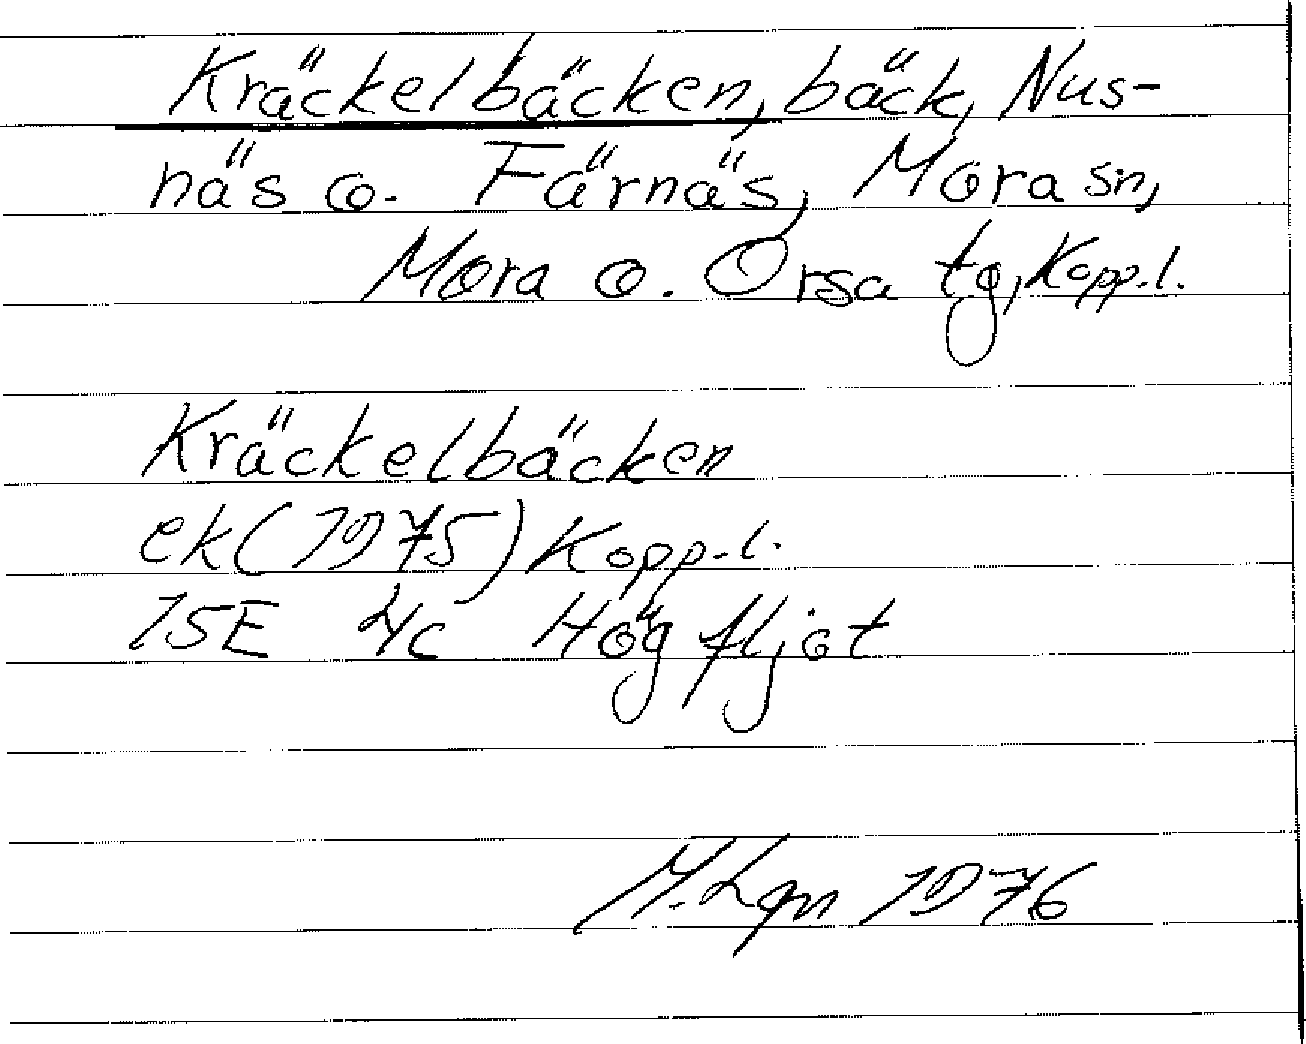 Kräckelbäcken, bäck, Nus-
näs o. Färnäs, Mora sn,
Mora o. Orsa tg, Kopp.l.
Kräckelbäcken
ek(1975) Kopp.l.
15E 4c Högfljot
M. Lgn 1976